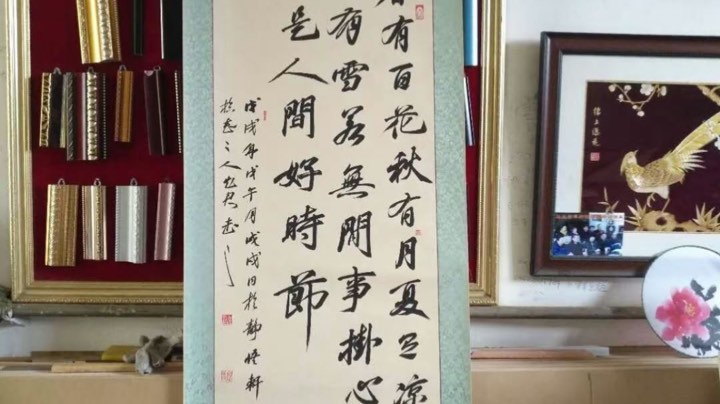 春有百花秋有月夏有涼
有雪若無閒事掛心
是人間好時節
戊戌年戊午月戊戌日於靜悟軒
錦上添花